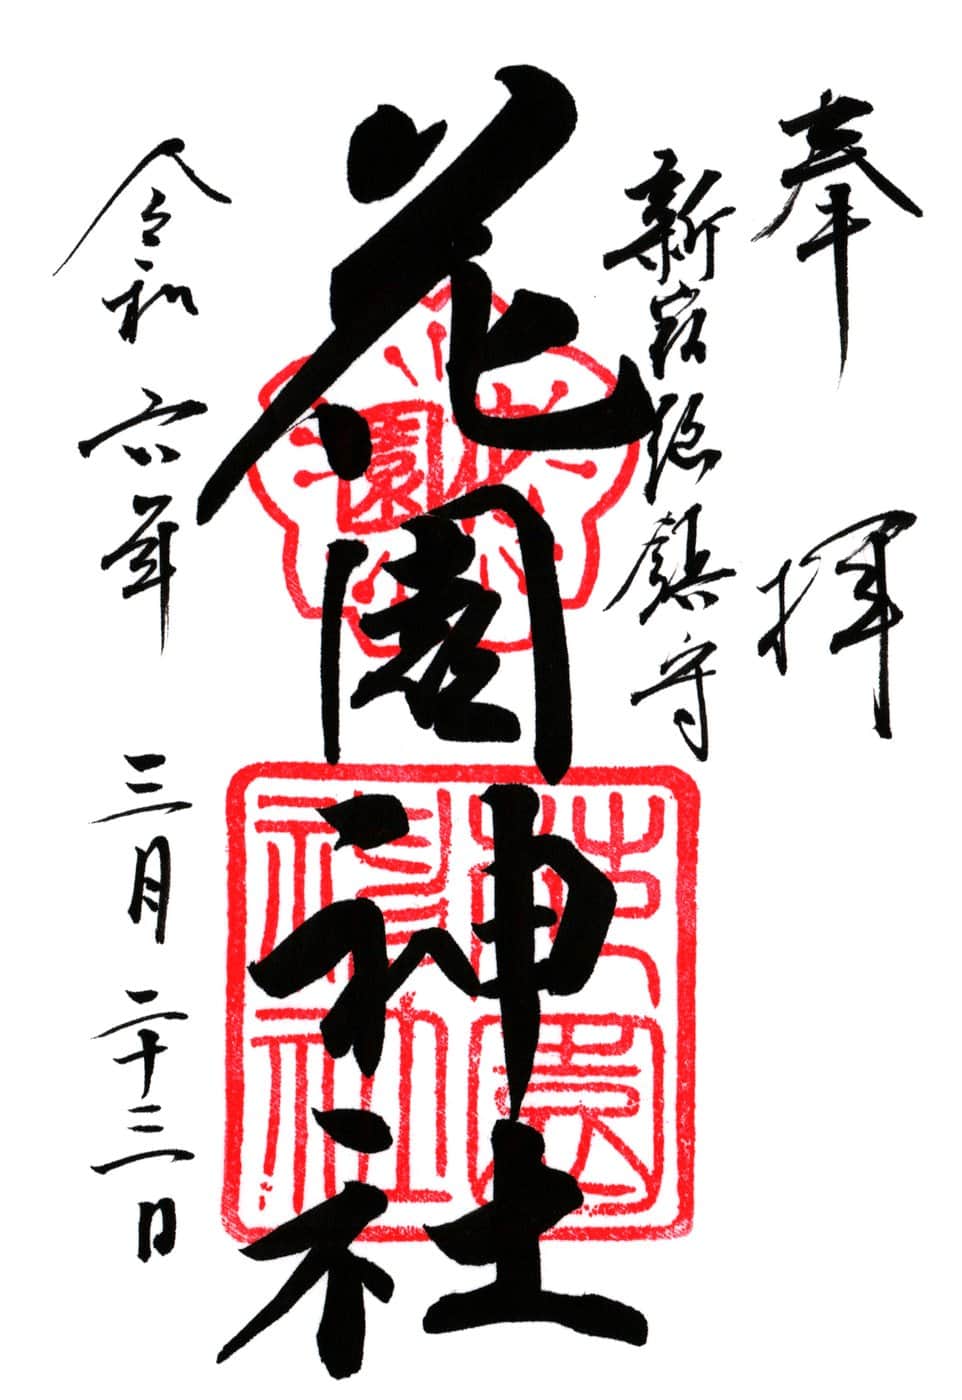 奉拝
新宿総鎮守
花園神社
花園神社
令和六年 三月二十三日